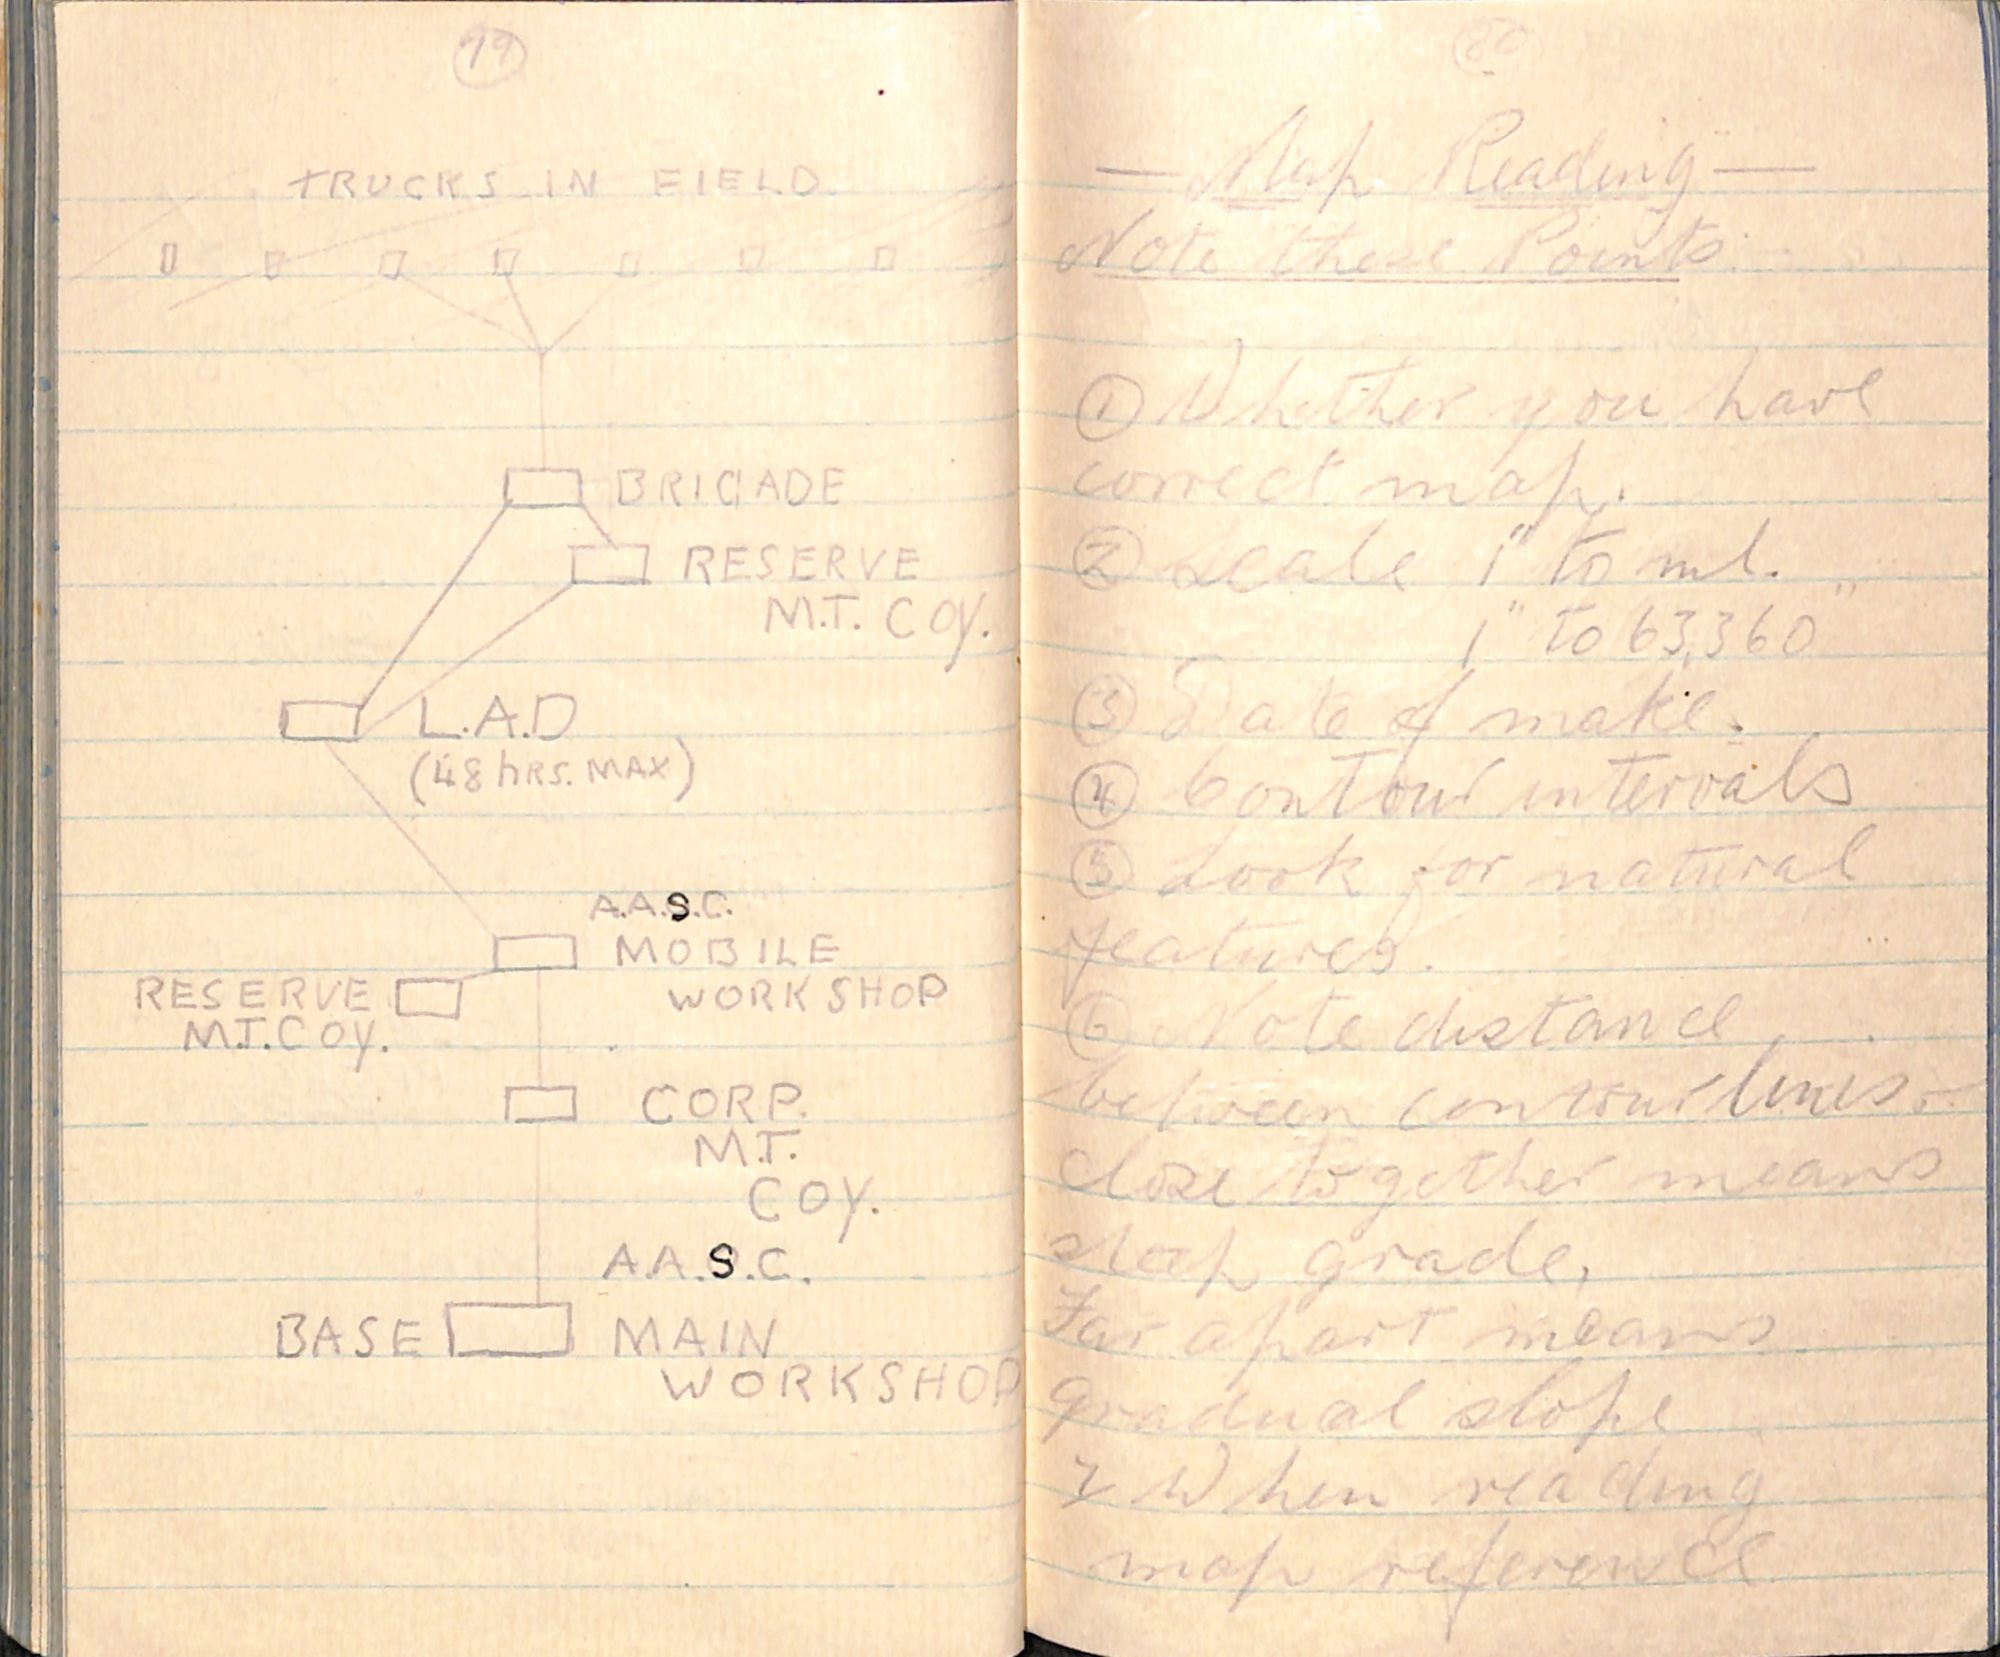 79
TRUCKS IN FIELD
BRIGADE
RESERVE
M.T. COY.
L.A.D
(48 hRS. MAX)
A.A.S.C.
MOBILE
WORKSHOP
RESERVE
M.T. COY.
CORP.
M.T.
COY.
A.A.S.C.
BASE MAIN
WORKSHOP
80
— Map Reading —
Note these Points:-
① Whether you have
correct map.
② Scale 1" to ml.
1" to 63,360"
③ Date of make.
④ Contour intervals
⑤ Look for natural
features.
⑥ Note distance
between contour lines.
Close together means
steep grade,
Far apart means
gradual slope
7 When reading
map reference